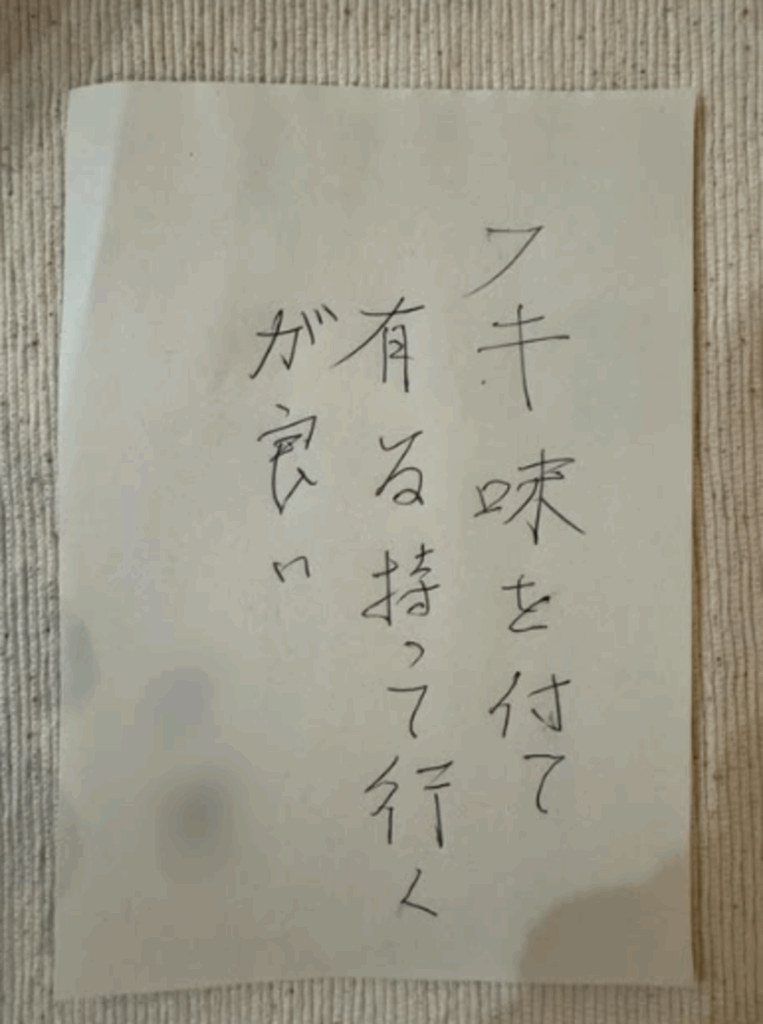 フキ味を付て
有る持って行く
が良い